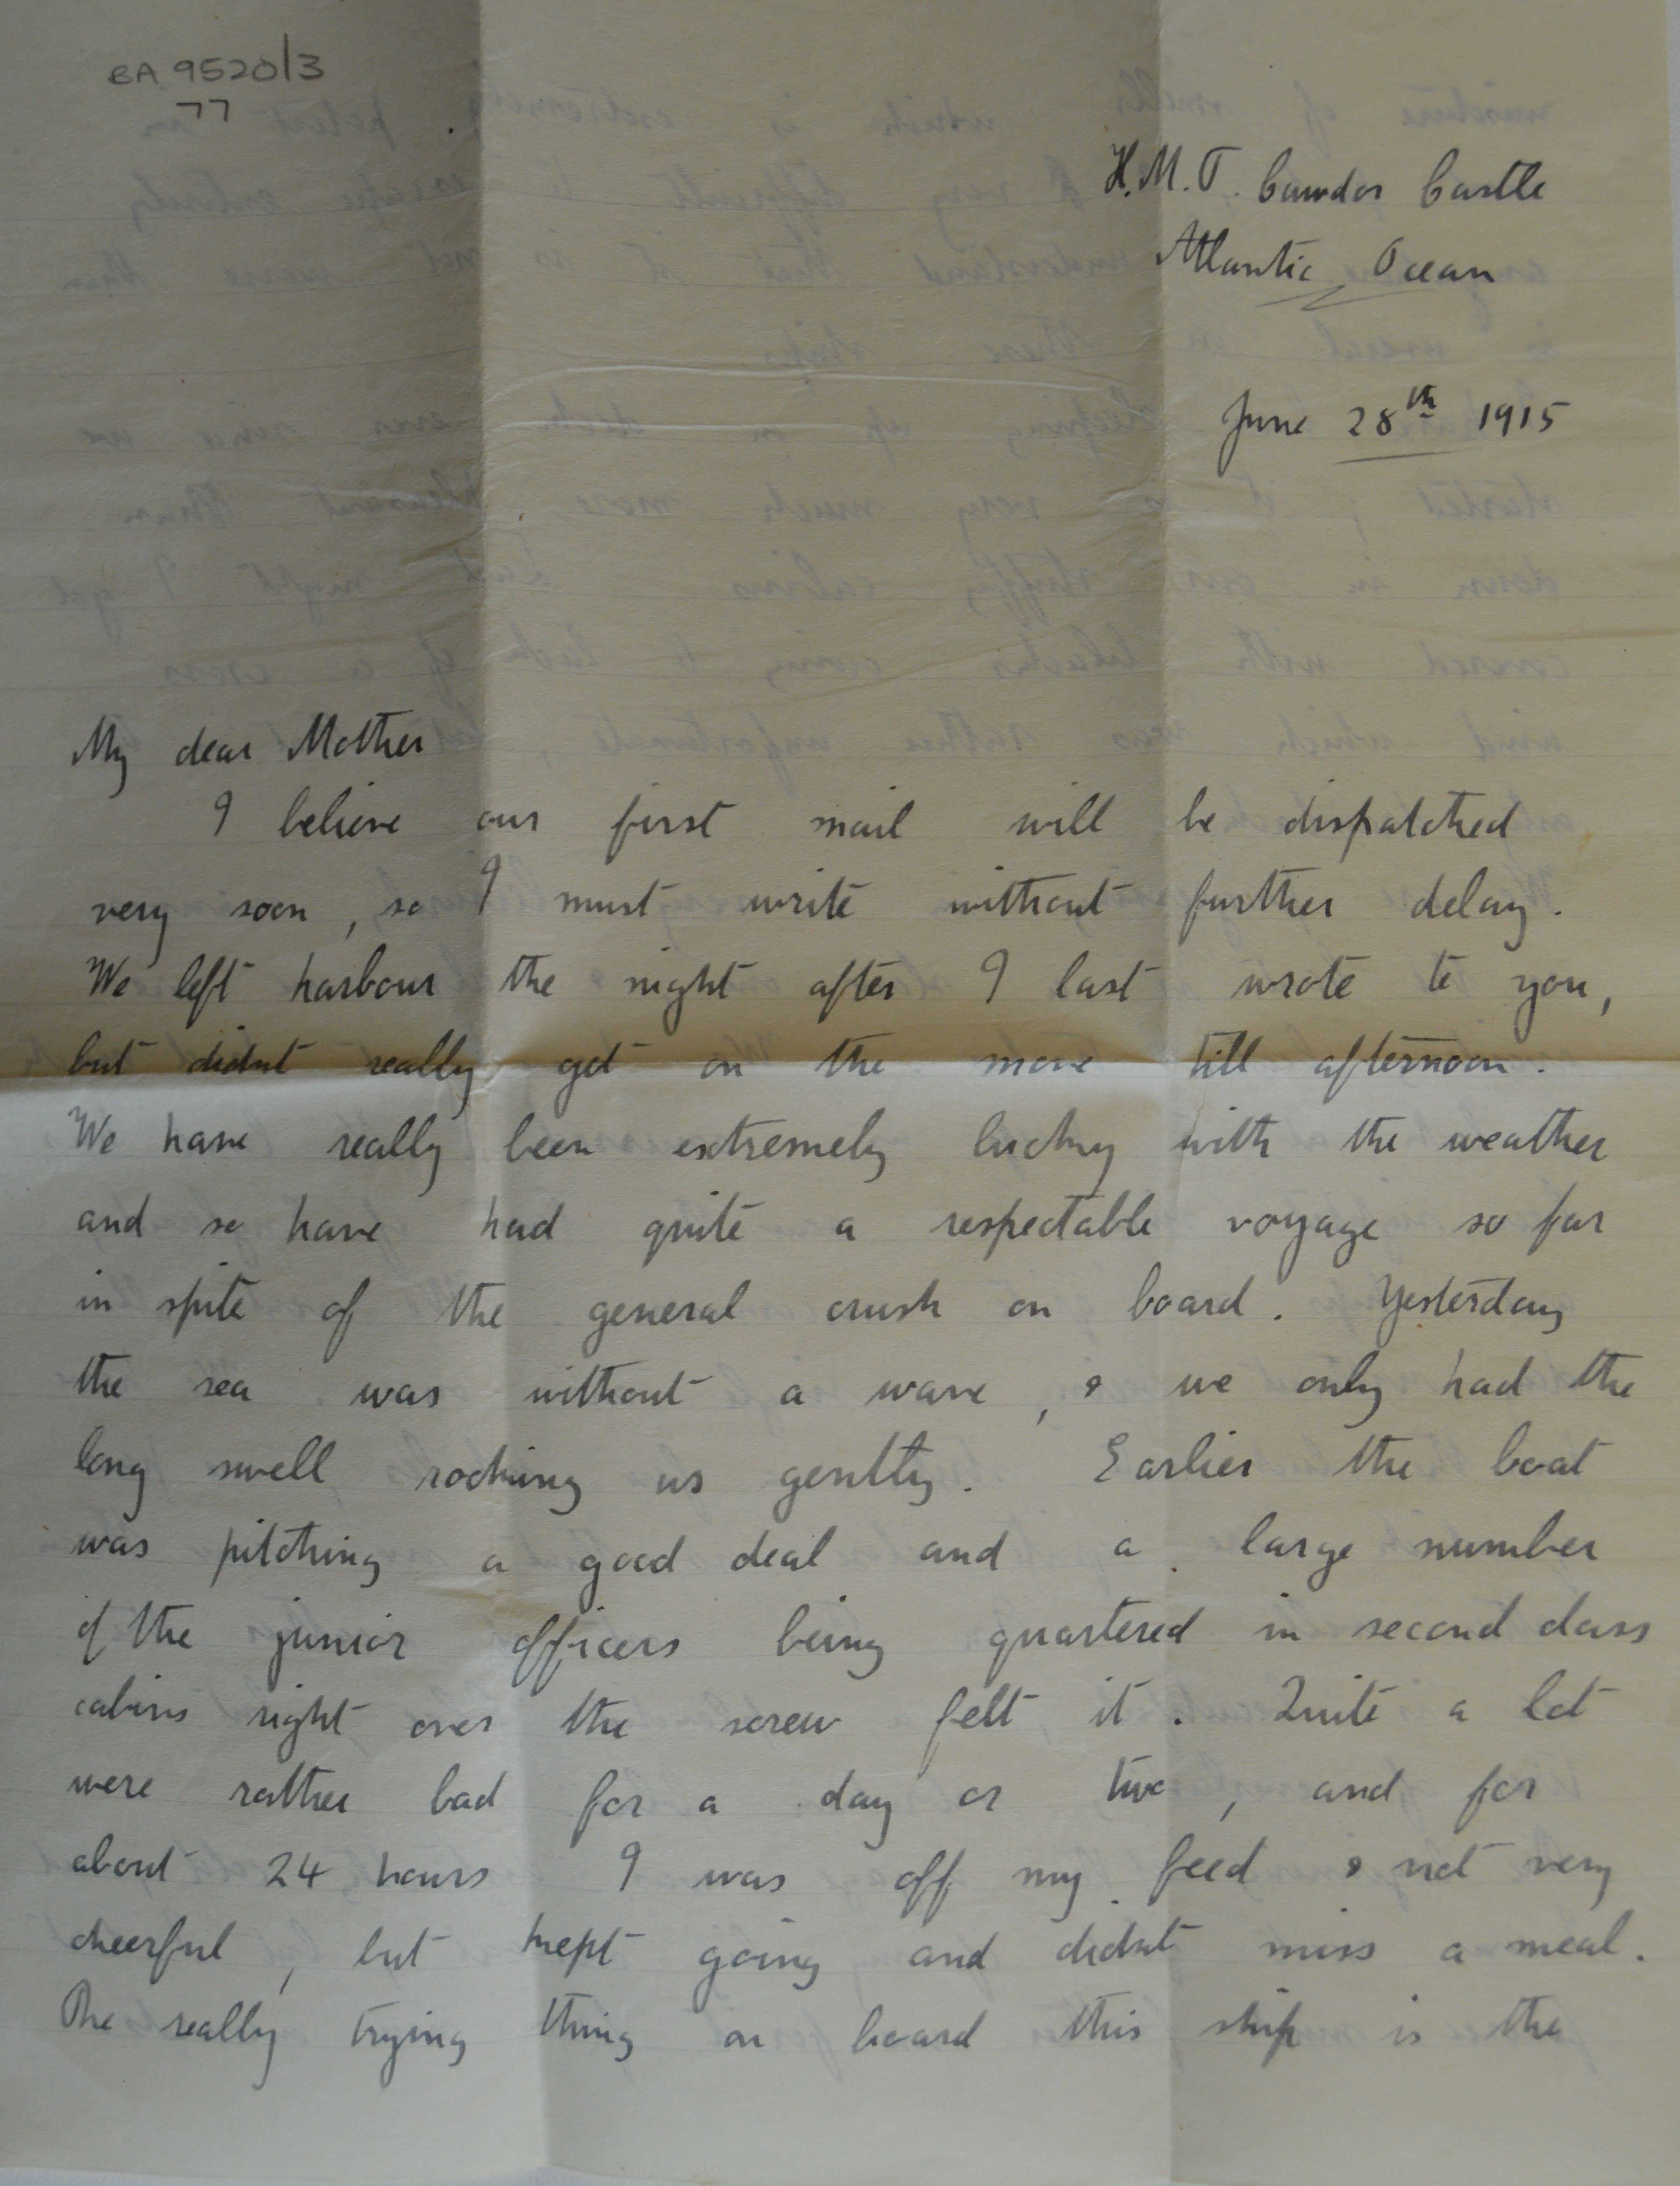 BA 9520/3
77
H.M.T. Cawdor Castle
Atlantic Ocean
June 28th 1915
My dear Mother
I believe our first mail will be dispatched
very soon, so I must write without further delay.
We left harbour the night after I last wrote to you,
but didnt really get on the move till afternoon.
We have really been extremely lucky with the weather
and so have had quite a respectable voyage so far
in spite of the general crush on board. Yesterday
the sea was without a wave, & we only had the
long swell rocking us gently. Earlier the boat
was pitching a good deal and a large number
of the junior officers being quartered in second class
cabins right over the screw felt it. Quite a lot
were rather bad for a day or two, and for
about 24 hours I was off my feed & not very
cheerful, but kept going and didnt miss a meal.
The really trying thing on board this ship is the